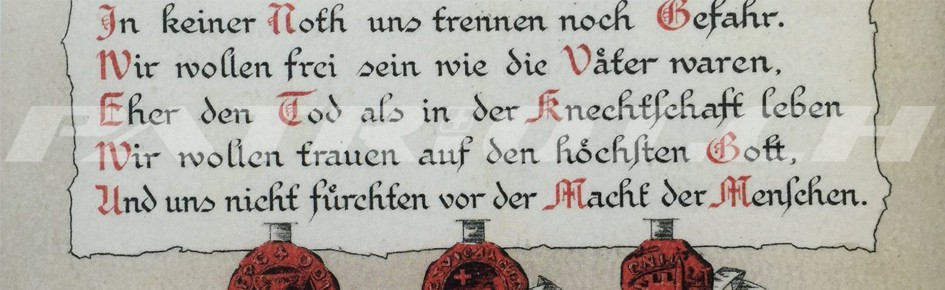 In keiner Noth uns trennen noch Gefahr.
Wir wollen frei sein wie die Väter waren,
Eher den Tod als in der Knechtschaft leben
Wir wollen trauen auf den höchsten Gott,
Und uns nicht fürchten vor der Macht der Menschen.